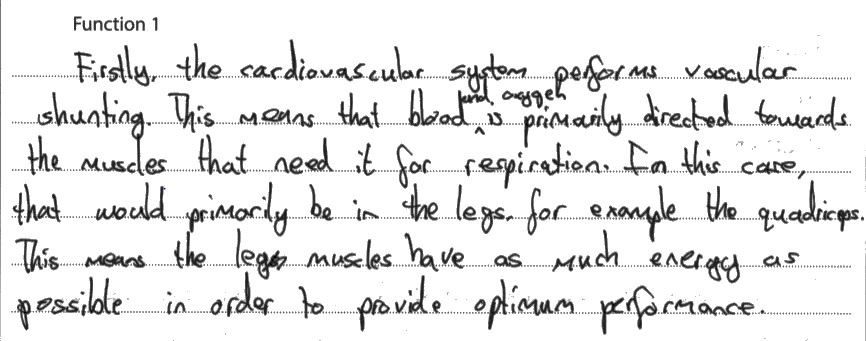 Function 1
Firstly, the cardiovascular system performs vascular
shunting. This means that blood and oxygen is primarily directed towards
the muscles that need it for respiration. In this case,
that would primarily be in the legs, for example the quadriceps.
This means the leg muscles have as much energy as
possible in order to provide optimum performance.